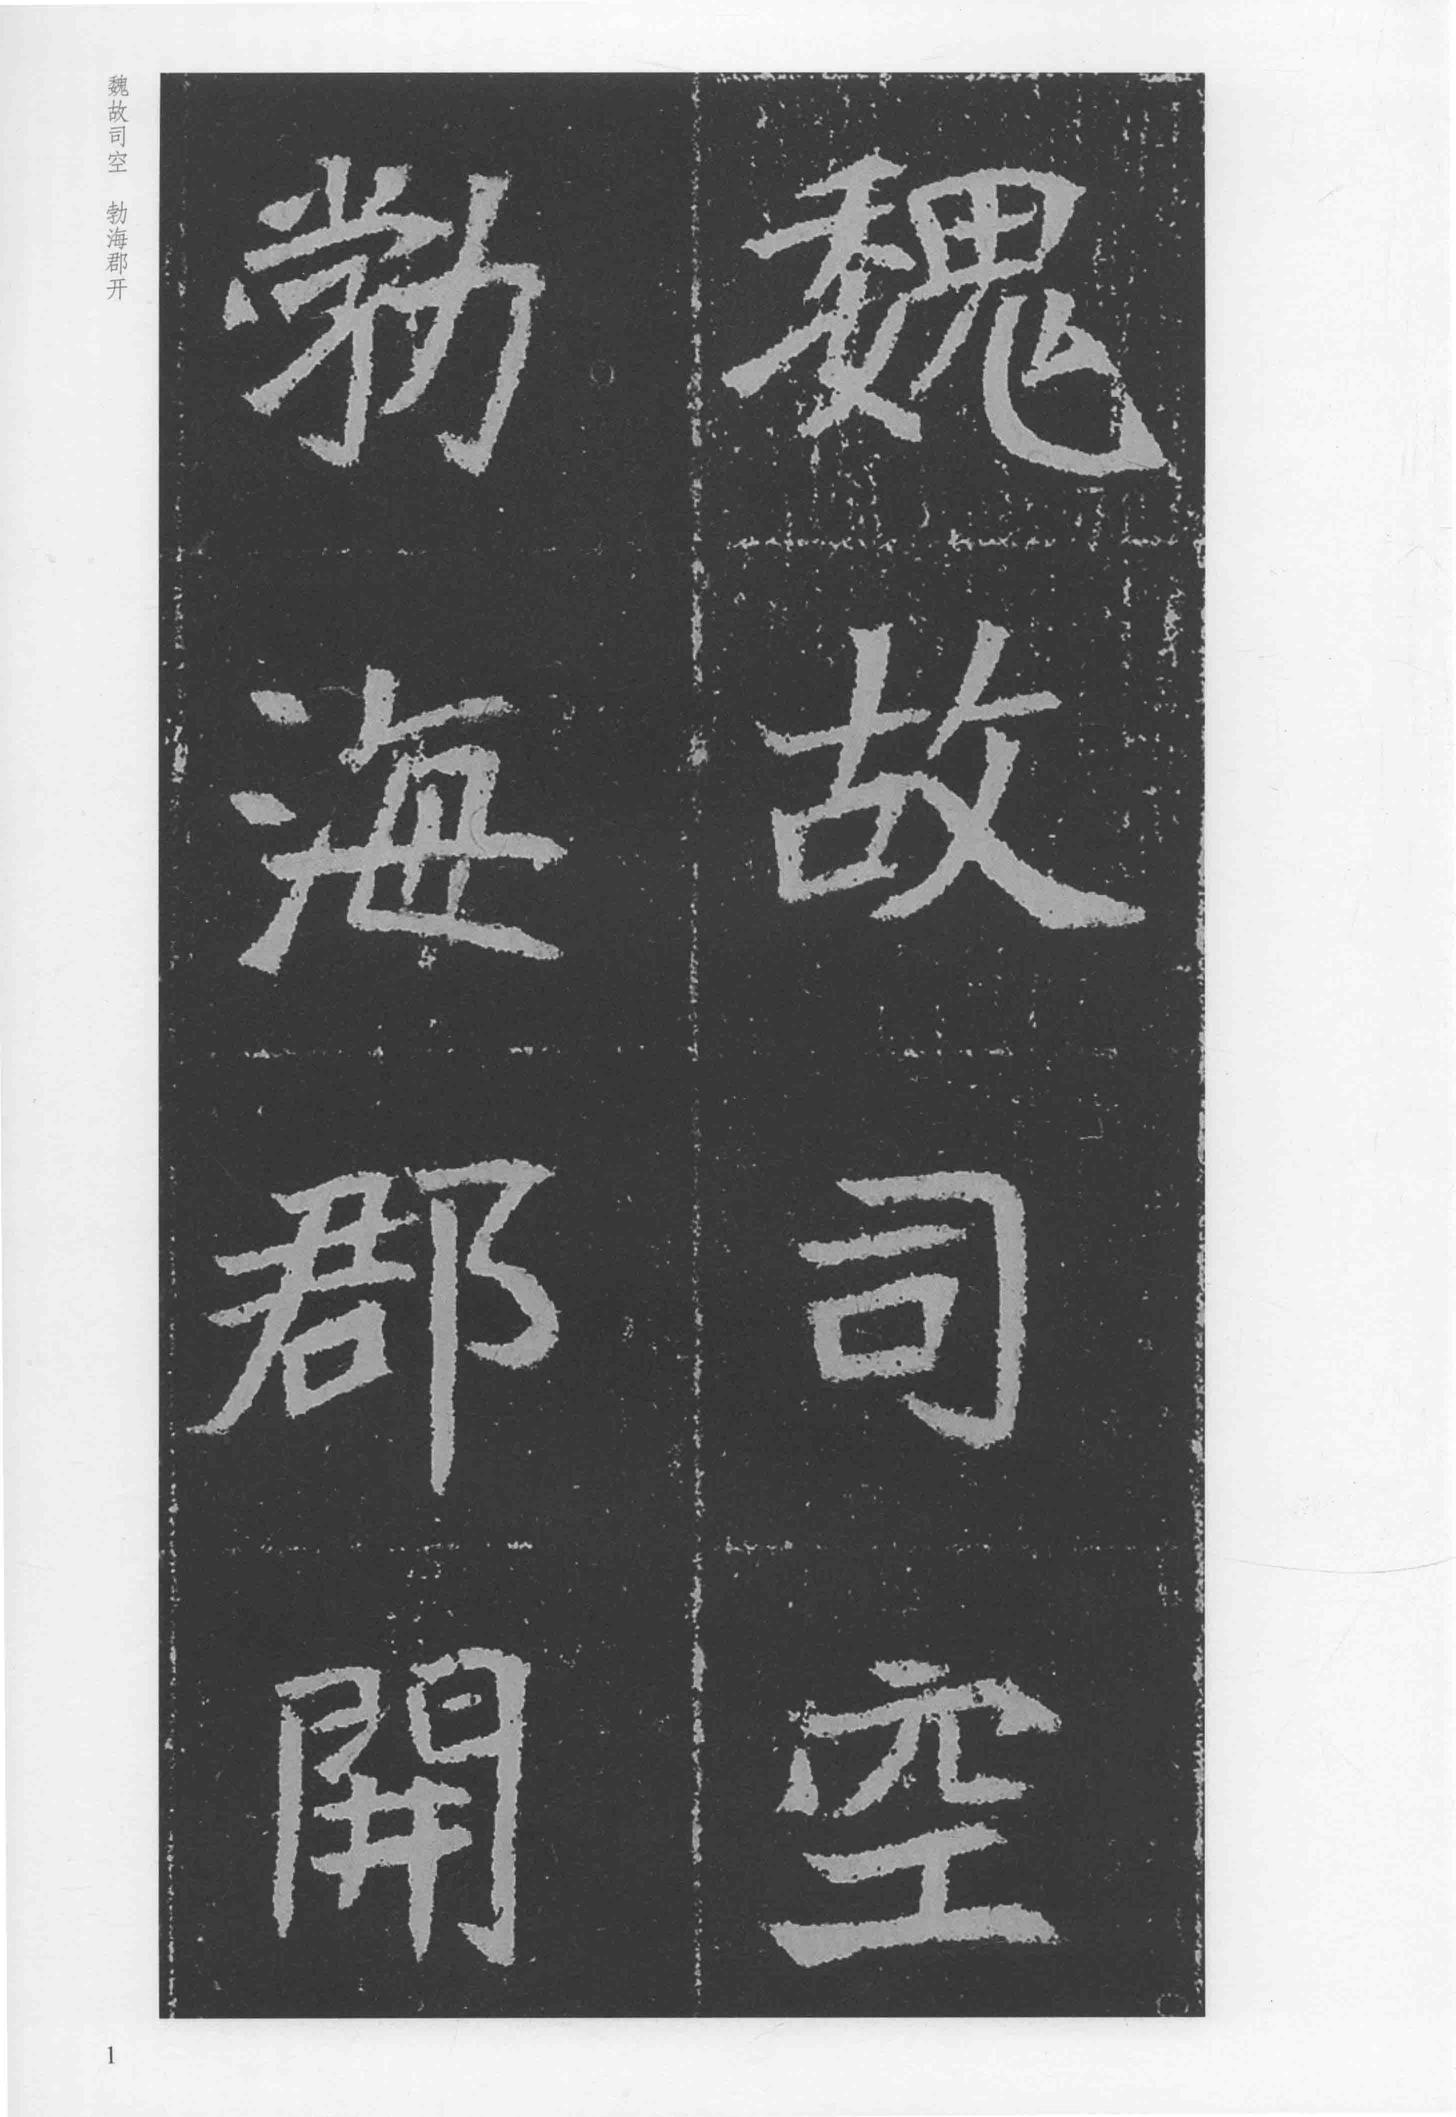 魏故司空
勃海郡開
魏故司空 勃海郡开
1